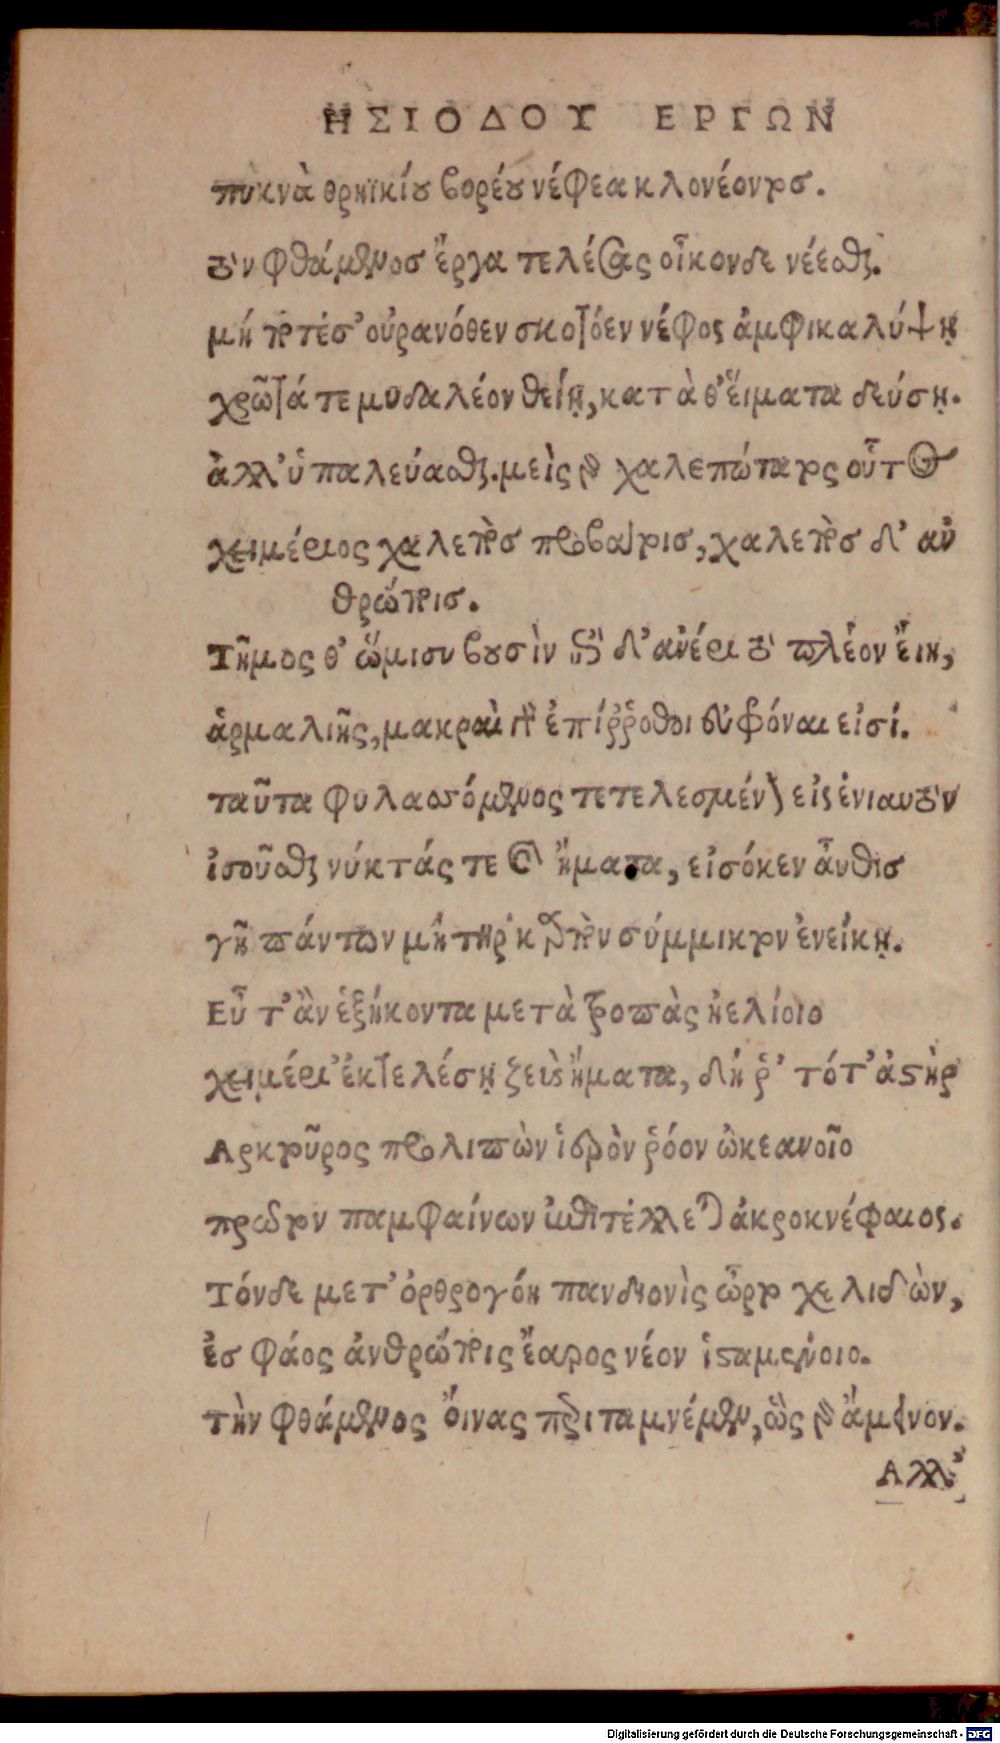 ΗΣΙΟΔΟΥ ΕΡΓΩΝ
πυκνὰ θρηϊκίου βορέου νέφεα κλονέοντος.
τὸν φθάμενος ἔργα τελέσας οἶκονδε νέεσθαι.
μή ποτέ σ' οὐρανόθεν σκοτόεν νέφος ἀμφικαλύψῃ
χρῶτά τε μυδαλέον θείῃ, κατὰ θ' εἵματα δεύσῃ.
ἀλλ' ὑπαλεύασθαι. μεὶς γὰρ χαλεπώτατος οὗτος
χειμέριος χαλεπὸς προβάτοις, χαλεπὸς δ' ἀν
θρώποις.
Τῆμος θ' ὥμισυ βουσὶν ἐπὶ δ' ἀνέρι τὸ πλέον εἴη,
ἁρμαλιῆς, μακραὶ γὰρ ἐπίῤῥοθοι εὐφρόναι εἰσί.
ταῦτα φυλασσόμενος τετελεσμένον εἰς ἐνιαυτὸν
ἰσοῦσθαι νύκτάς τε καὶ ἤματα, εἰσόκεν αὖθις
γῆ πάντων μήτηρ καρπὸν σύμμικτον ἐνείκῃ.
Εὖ τ' ἂν ἑξήκοντα μετὰ τροπὰς ἠελίοιο
χειμέρι' ἐκτελέσῃ ζεὺς ἤματα, δή ῥ' τότ' ἀστὴρ
Αρκτοῦρος προλιπὼν ἱερὸν ῥόον ὠκεανοῖο
πρῶτον παμφαίνων ἐπιτέλλεται ἀκροκνέφαιος.
Τόνδε μετ' ὀρθρογόη πανδιονὶς ὦρτο χελιδὼν,
ἐσ φάος ἀνθρώποις ἔαρος νέον ἱσταμένοιο.
τὴν φθάμενος οἴνας περιταμνέμεν, ὣς γὰρ ἄμεινον.
Αλλ'
Digitalisierung gefördert durch die Deutsche Forschungsgemeinschaft - DFG